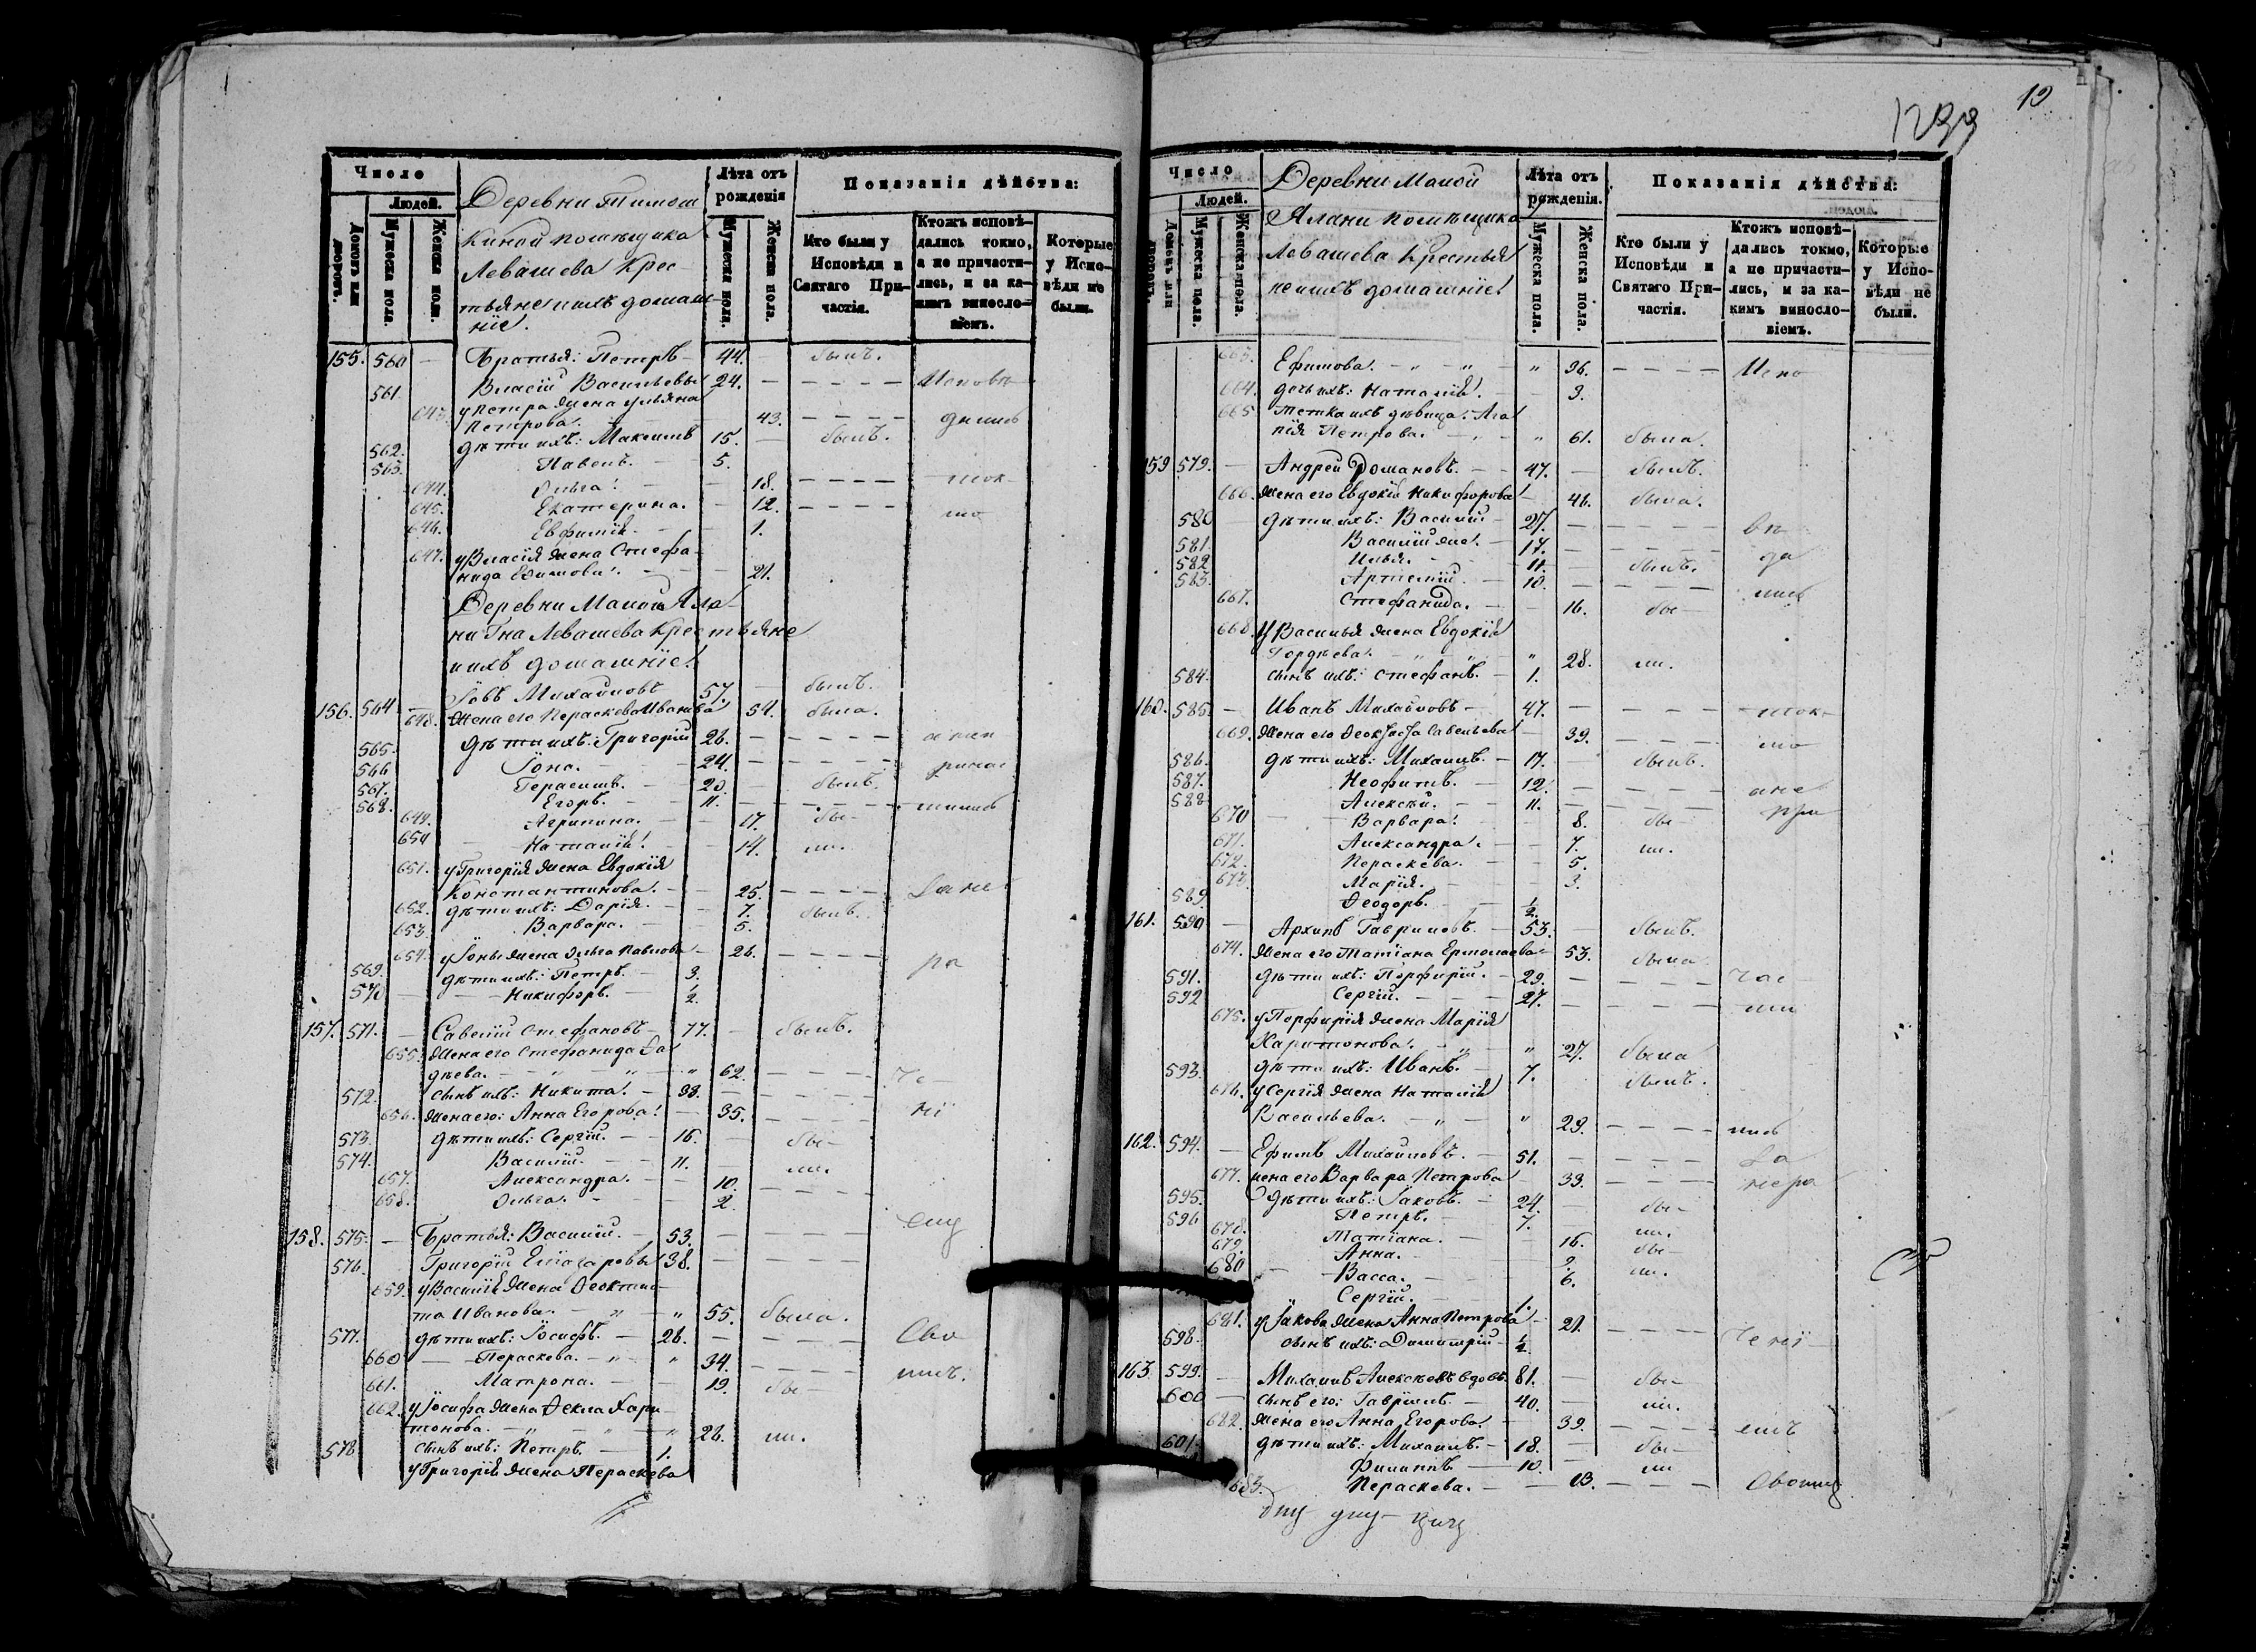 Число
Людей.
Домовъ или дворовъ.
Мужеска пола.
Женска пола.
Деревни Тимош
киной помѣщика
Левашева Крес-
тьяне и ихъ домаш-
нiе.
Лѣта отъ рожденiя
Мужеска пола.
Женска пола.
Показанiя дѣйства:
Кто были у Исповѣди и Святаго Причастiя.
Ктожъ исповѣдались токмо, а не причастились, и за какимъ винословiемъ.
Которые у Исповѣди не были.
155. 560 — Братья: Петръ — 44. — былъ.
561. Власiй Васильевы 24. — — — — Исповѣ-
643. у Петра жена Ульяна
Петрова. 43. — — — — дались
562. дѣти ихъ: Максимъ 15. — былъ.
563. Павелъ. — 5.
644. Ольга. — 18. — — — — ток-
645. Екатерина. — 12. — — — — мо
646. Евфимiя. — 1.
647. у Власiя жена Стефа-
нида Ефимова. — 21.
Деревни Малой Ала-
ни Гна Левашева Крестьяне
и ихъ домашнiе.
156. 564 — Iовъ Михайловъ 57. — былъ.
648. Жена его Пераскева Иванова 54. была.
565. дѣти ихъ: Григорiй 26. — — — — а не п
566 Iона. — 24. — — — — ричас
567. Герасимъ. — 20. былъ.
568. Егоръ. — 11. — — — — тились
649. Агрипина. — 17. бы-
650 Наталiя. — 14. ли.
651. у Григорiя жена Евдокiя
Константинова. — 25. — — — — За не
652. дѣти ихъ: Дарiя. — 7. былъ.
653. Варвара. — 5.
654. у Iоны жена Ольга Павлова — 26. — — — — ра
569. дѣти ихъ: Петръ. — 3.
570 — Никифоръ. — 1/2.
157. 571. — Савелiй Стефановъ — 77. — былъ.
655. Жена его Стефанида Фа
дѣева. — „ — „ — „ 62. — — — — че-
572. сынъ ихъ: Никита. — 38. — — — —
656. жена его: Анна Егорова. — 35. — — — — нi
573. дѣти ихъ: Сергiй. — 16. — бы-
574. Василiй. — 11. — ли.
657. Александра. — 10.
658. Ольга. — 2. — — —
158. 575. — Братья: Василiй. — 53. — — — — ему
576. Григорiй Елiазаровы 38. — — — —
659. у Василiя жена Феокти-
та Иванова. — „ — „ 55. была.
577. дѣти ихъ: Iосифъ. — 26. — — — — Сво
660 — Пераскева. — „ — „ 34. — — — — имъ.
661. Матрона. — 19. бы-
662. у Iосифа жена Фекла Хари-
тонова. — „ — „ — „ 26. ли.
578 сынъ ихъ: Петръ. — 1.
у Григорiя жена Пераскева
1299
10
Число
Людей.
Домовъ или дворовъ.
Мужеска пола.
Женска пола.
Деревни Малой
Алани помѣщика
Левашева Крестья
не и ихъ домашнiе.
Лѣта отъ рожденiя.
Мужеска пола.
Женска пола.
Показанiя дѣйства:
Кто были у Исповѣди и Святаго Причастiя.
Ктожъ исповѣдались токмо, а не причастились, и за какимъ винословiемъ.
Которые у Исповѣди не были.
663. Ефимова. — „ — „ — „ 36. — — — — Испо
664. дочь ихъ: Наталiя. — 3.
665 Тетка ихъ дѣвица: Ага
пiя Петрова. — „ — „ 61. была.
159 579. — Андрей Романовъ. — 47. — былъ.
666. Жена его Евдокiя Никифорова 46. была.
580 — дѣти ихъ: Василiй — 27. — — — — вѣ
581. Василiй же. — 17. — — — — да
582 Илья. — 11. — былъ.
583. Артемiй. — 10. — — — — лись
667. Стефанида. — 16. бы-
668. У Василья жена Евдокiя
Гордѣева. — „ — „ — „ 28. ли.
584. сынъ ихъ: Стефанъ. — 1.
160. 585. — Иванъ Михайловъ — 47. — — — — ток-
669. Жена его Феоктиста Савельева 39. — — — — мо
586. дѣти ихъ: Михаилъ. — 17. — былъ.
587. Неофитъ. — 12. — — — — а не
588 Алексѣй. — 11. — — — — при
670 — Варвара. 8. бы-
671. Александра. — 7. ли.
672. Пераскева. — 5.
673. Марiя. — 3.
589. Феодоръ. — 1/2.
161. 590 — Архипъ Гавриловъ. — 53. — былъ.
674. Жена его Татiана Ермолаева — 53. была
591. дѣти ихъ: Порфирiй. — 29. — — — — час
592 Сергiй. — 27. — — — — ти
675. у Порфирiя жена Марiя
Харитонова. — „ — „ 27. была
593. дѣти ихъ: Иванъ. — 7. былъ.
676. у Сергiя жена Наталiя
Васильева. — „ — „ 29. — — — — лись
162. 594. — Ефимъ Михайловъ. — 51. — — — — За
677. жена его Варвара Петрова 39. — — — — нера
595. дѣти ихъ: Iаковъ. — 24. — бы-
596 Петръ. — 7. — ли.
678. Татiана. — 16. бы-
679. Анна. — 9. ли.
680 — Васса. — 6.
Сергiй. — 1.
681. у Iакова жена Анна Петрова — 21. — — — — ченi
598. сынъ ихъ: Димитрiй — 1/2.
163 599. — Михаилъ Алексѣевъ вдовъ. 81. — бы-
600 — сынъ его: Гаврiилъ. — 40. — ли.
682. Жена его Анна Егорова. — 39. — — — — емъ
601. дѣти ихъ: Михаилъ. — 18. — бы-
Филиппъ — 10. — ли
683. Пераскева. — 13. — — — Своимъ